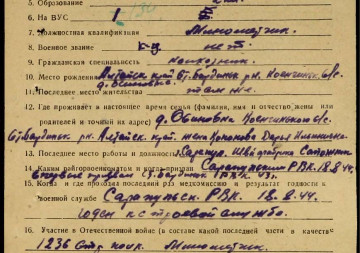 5. Образование
6. На ВУС 1
7. Должностная квалификация Минометчик.
8. Военное звание к-ц нет
9. Гражданская специальность
10. Место рождения Алтайск. край Ст. Бардинск. рн.
д. Обиновка
11. Последнее место жительства там же.
12. Где проживает в настоящее время семья (фамилия, имя и отчество жены или
родителей и точный их адрес) д. Обиновка
Ст. Бардинск. рн. Алтайск. край. жена Кононова Дарья
13. Последнее место работы и должность Сарапул, фабрика Сапожник
14. Каким райгорвоенкоматом и когда призван Сарапульским РВК. 18.8.44.
впервые призван
15. Когда и где проходил раз медкомиссию и результат годности к
военной службе Сарапульск. РВК. 18.8.44.
годен к строевой службе.
16. Участие в Отечественной войне (в составе какой последней части в качестве
1236 стр полк. Минометчик.